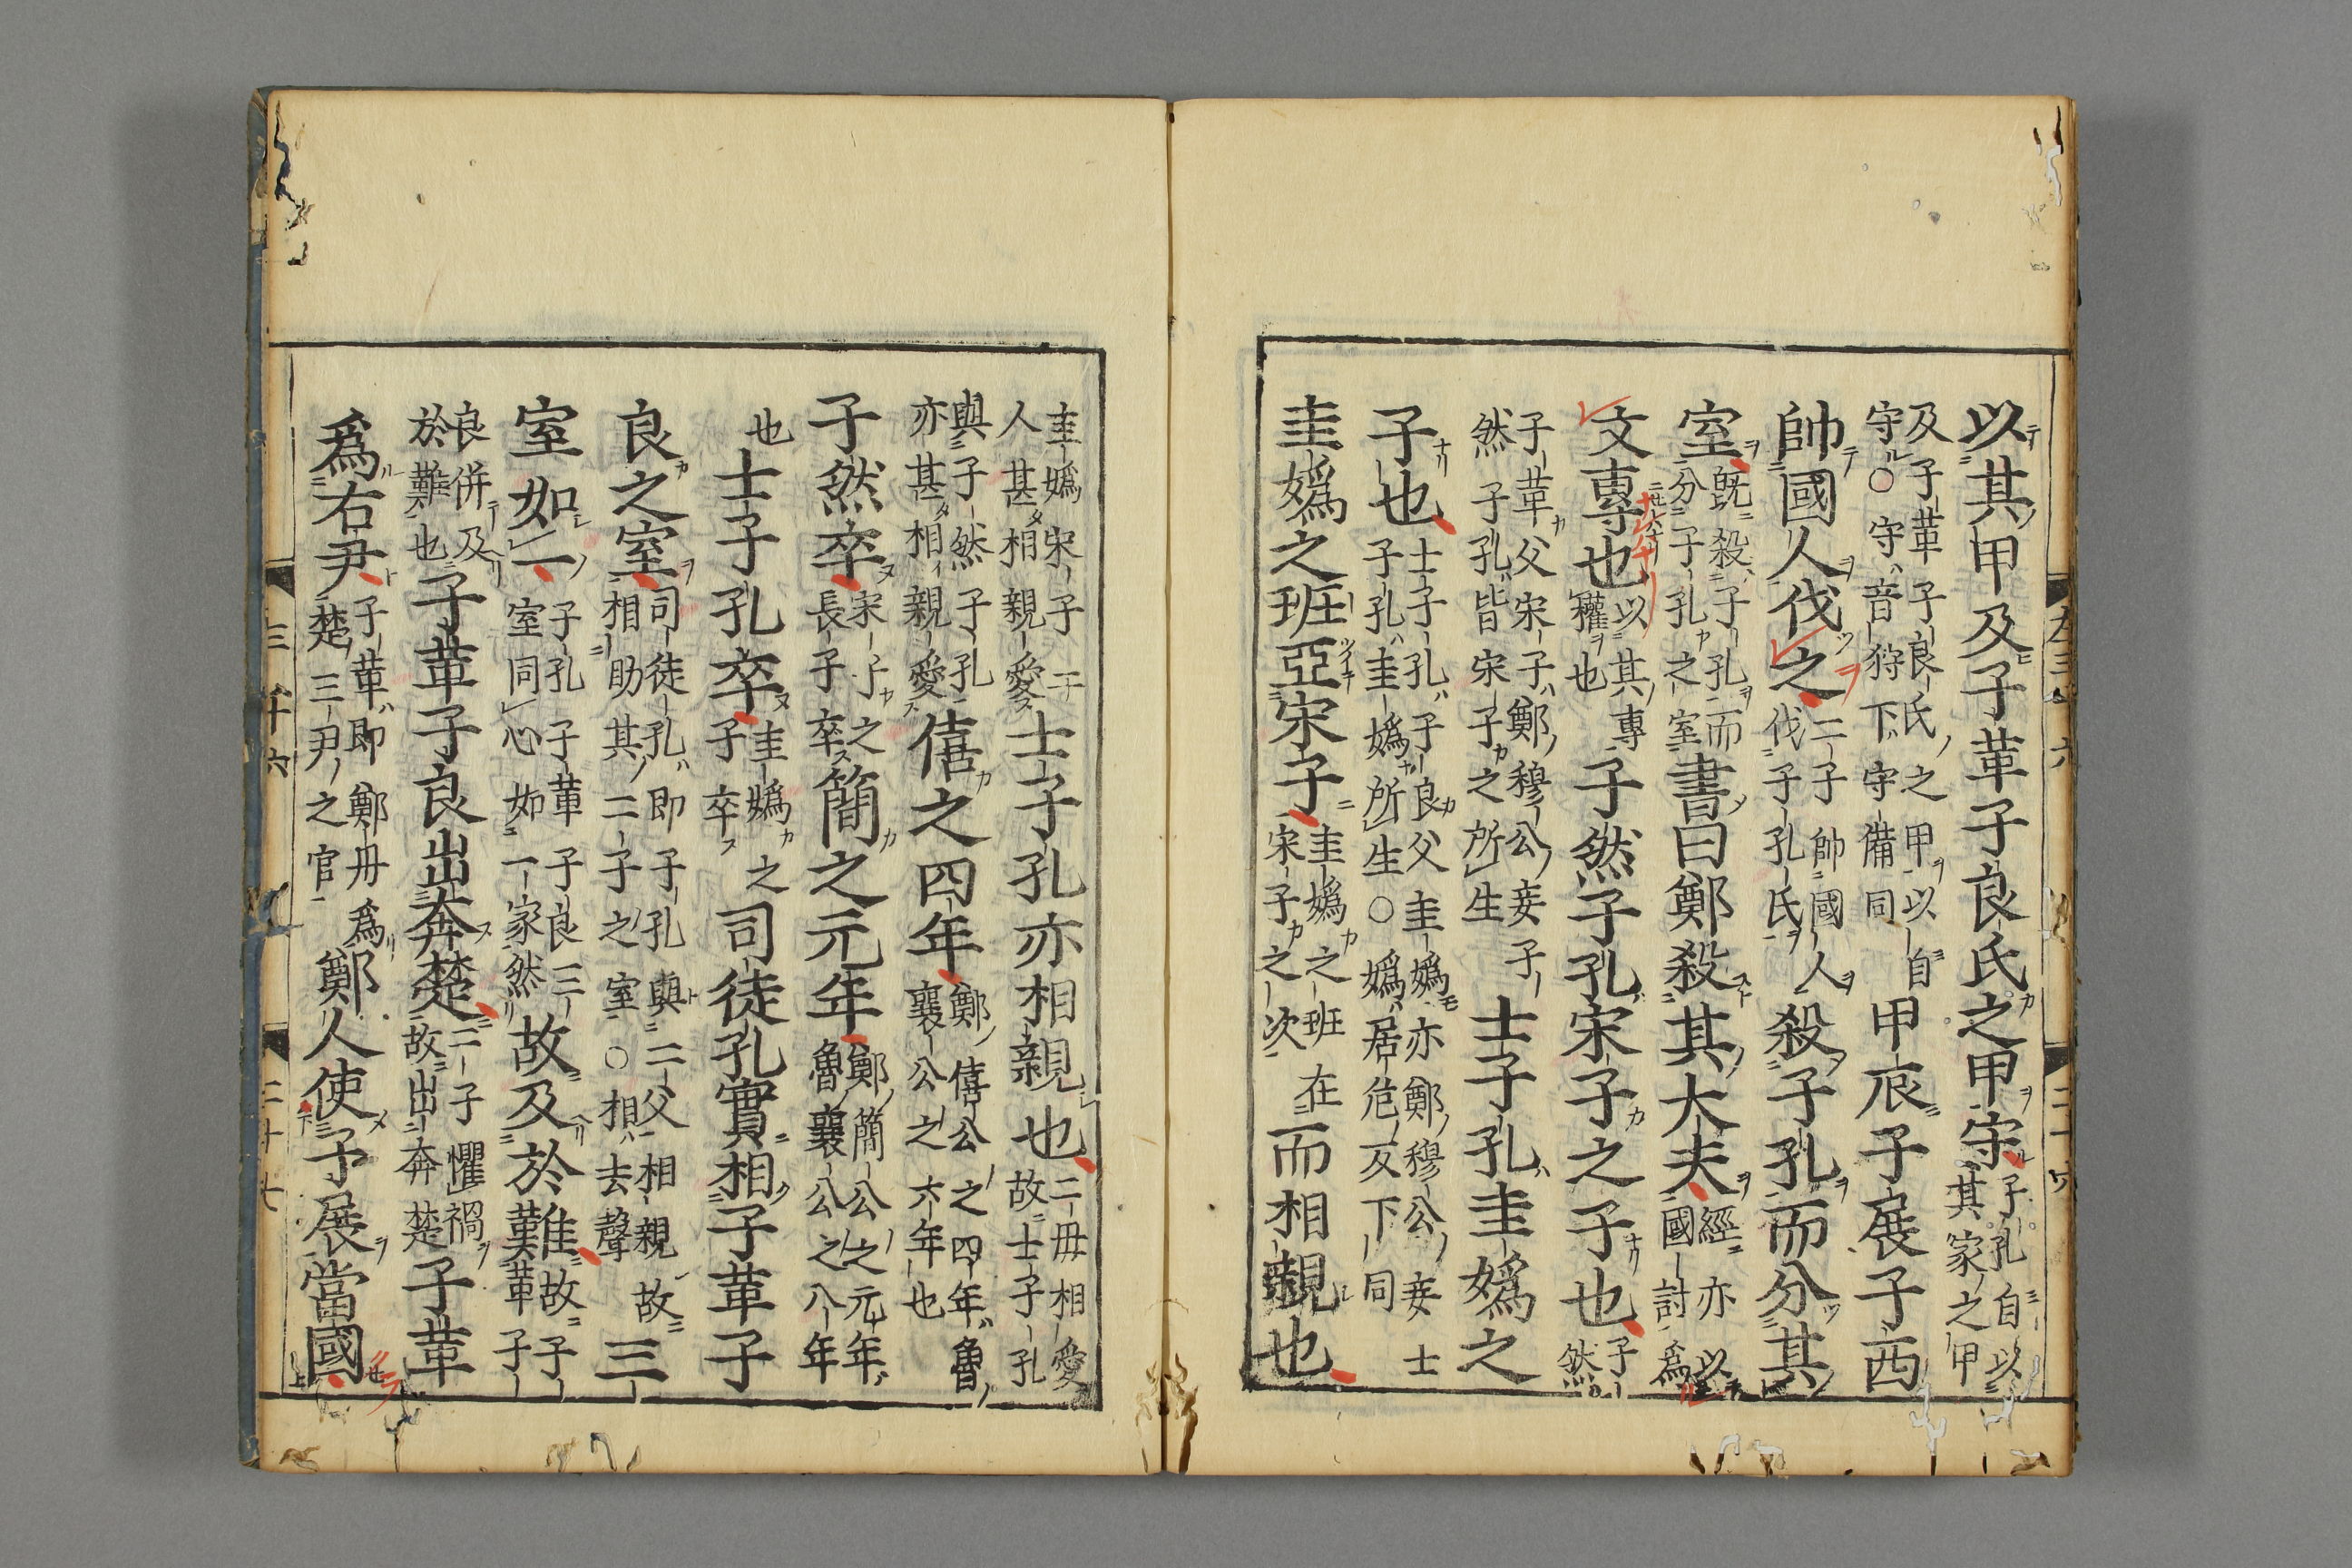 以其甲及子革子良氏之甲守子孔自以其家之甲
及子革子良氏之甲以自守○守音狩下守備同甲辰子展子西
帥國人伐之二子帥國人伐子孔氏殺子孔而分其
室既殺子孔而分子孔之室書曰鄭殺其大夫經亦以國討爲
文專也以其專權也子然子孔宋子之子也子然
子革父宋子鄭穆公妾子然子孔皆宋子之所生士子孔圭媯之
子也士子孔子良父圭媯亦鄭穆公妾士子孔圭媯所生○媯居危反下同
圭媯之班亞宋子圭媯之班在宋子之次而相親也
圭媯宋子二人甚相親愛士子孔亦相親也二母相愛故士子孔
與子然子孔亦甚相親愛僖之四年鄭僖公之四年魯襄公之六年也
子然卒宋子之長子卒簡之元年鄭簡公之元年魯襄公之八年
也士子孔卒圭媯之子卒司徒孔實相子革子
良之室司徒孔即子孔與二父相親故相助其二子之室○相去聲三
室如一子孔子革子良三室同心如一家然故及於難故子革子
良併及於難也子革子良出奔楚二子懼禍故出奔楚子革
爲右尹子革即鄭丹爲楚三尹之官鄭人使子展當國